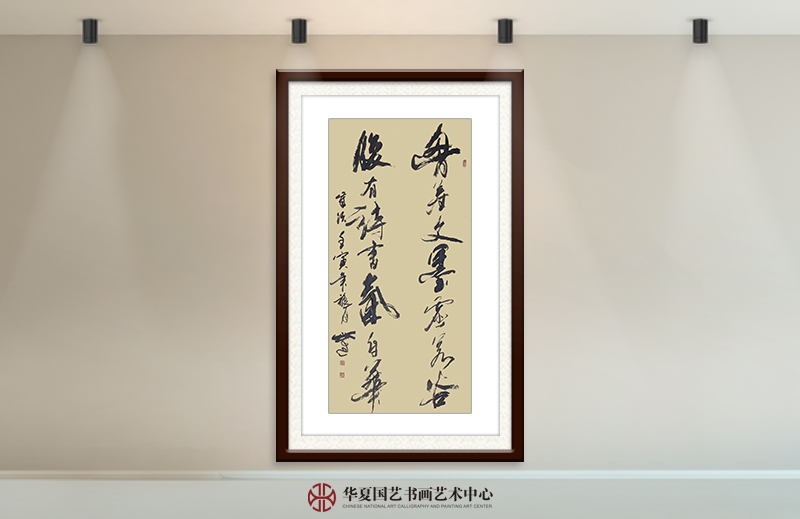 胸存文墨虚若谷
腹有詩書氣自華
歲次壬寅年月
华夏国艺书画艺术中心
CHINESE NATIONAL ART CALLIGRAPHY AND PAINTING ART CENTER